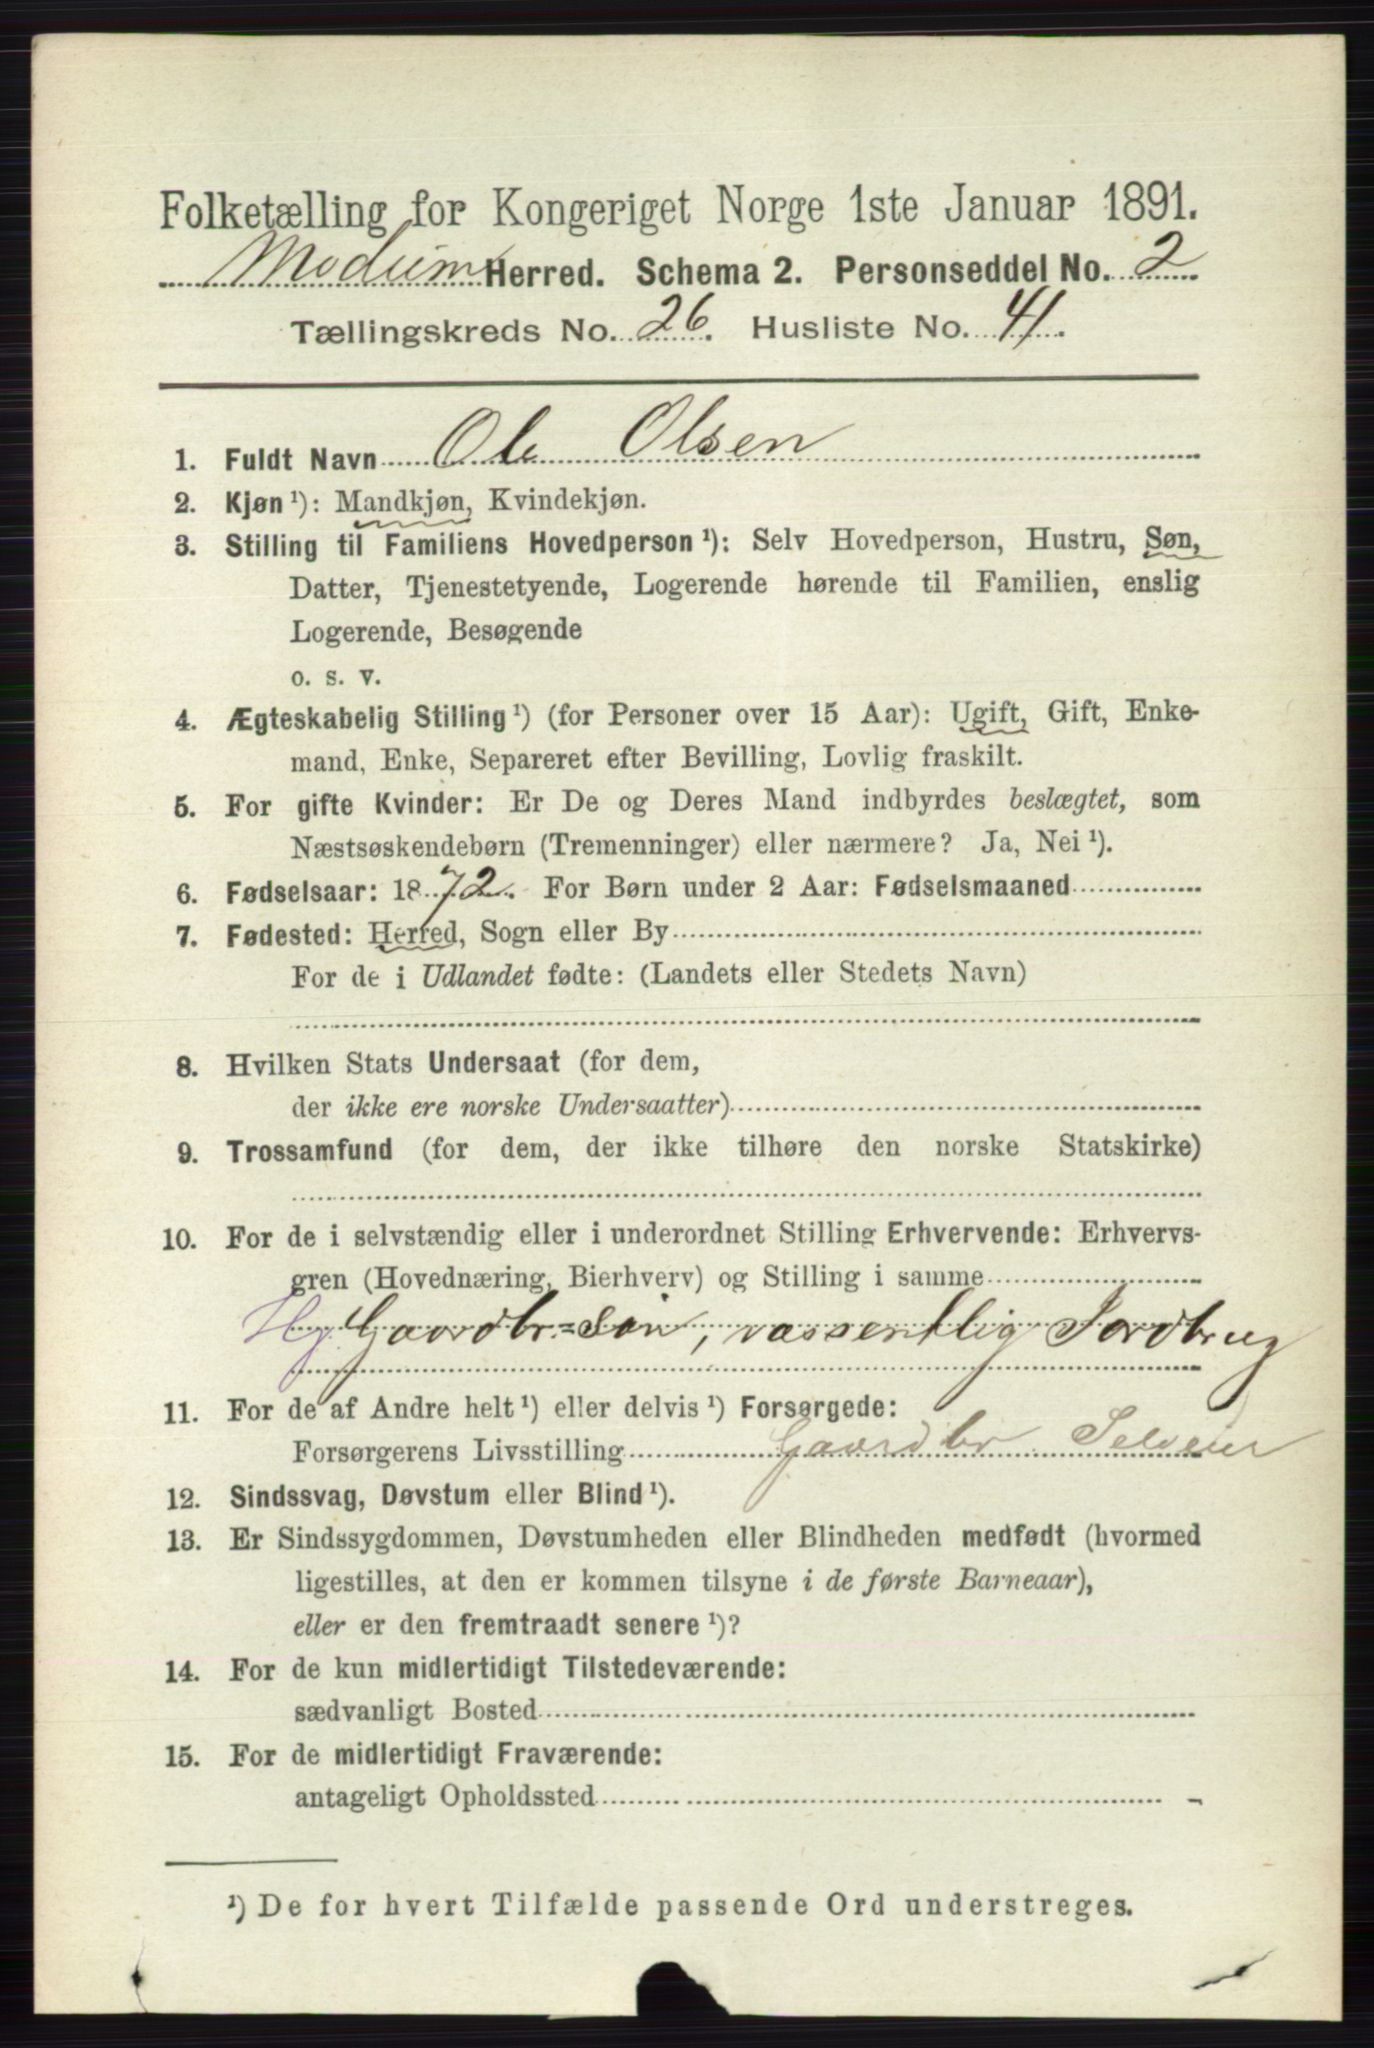 Folketælling for Kongeriget Norge 1ste Januar 1891.
Modum Herred. Schema 2. Personseddel No. 2
Tællingskreds No. 26. Husliste No. 41.
1. Fuldt Navn Ole Olsen
2. Kjøn ¹): Mandkjøn, Kvindekjøn.
3. Stilling til Familiens Hovedperson ¹): Selv Hovedperson, Hustru, Søn,
Datter, Tjenestetyende, Logerende hørende til Familien, enslig
Logerende, Besøgende
o. s. v.
4. Ægteskabelig Stilling ¹) (for Personer over 15 Aar): Ugift, Gift, Enke-
mand, Enke, Separeret efter Bevilling, Lovlig fraskilt.
5. For gifte Kvinder: Er De og Deres Mand indbyrdes beslægtet, som
Næstsøskendebørn (Tremenninger) eller nærmere? Ja, Nei ¹).
6. Fødselsaar: 1872. For Børn under 2 Aar: Fødselsmaaned
7. Fødested: Herred, Sogn eller By
For de i Udlandet fødte: (Landets eller Stedets Navn)
8. Hvilken Stats Undersaat (for dem,
der ikke ere norske Undersaatter)
9. Trossamfund (for dem, der ikke tilhøre den norske Statskirke)
10. For de i selvstændig eller i underordnet Stilling Erhvervende: Erhvervs-
gren (Hovednæring, Bierhverv) og Stilling i samme
Hj. Gaardbr=Søn, vassentlig Jordbrug
11. For de af Andre helt ¹) eller delvis ¹) Forsørgede:
Forsørgerens Livsstilling Gaardbr Seleier
12. Sindssvag, Døvstum eller Blind ¹).
13. Er Sindssygdommen, Døvstumheden eller Blindheden medfødt (hvormed
ligestilles, at den er kommen tilsyne i de første Barneaar),
eller er den fremtraadt senere ¹)?
14. For de kun midlertidigt Tilstedeværende:
sædvanligt Bosted
15. For de midlertidigt Fraværende:
antageligt Opholdssted
¹) De for hvert Tilfælde passende Ord understreges.